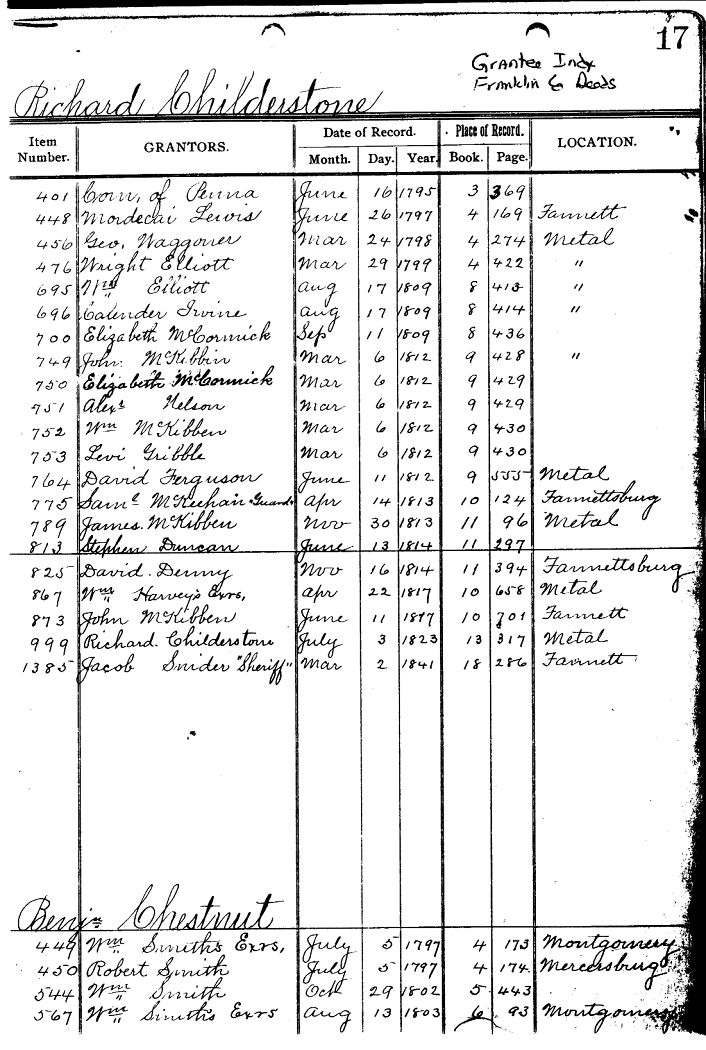 17
Grantee Indx
Franklin Co Deeds
Richard Childerstone
Item Number. GRANTORS. Date of Record. Place of Record. LOCATION.
Month. Day. Year. Book. Page.
401 Com, of Penna June 16 1795 3 369
448 Mordecai Lewis June 26 1797 4 169 Fannett
456 Geo, Waggoner Mar 24 1798 4 274 Metal
476 Wright Elliott Mar 29 1799 4 422 "
695 Wm Elliott Aug 17 1809 8 413 "
696 Calender Irvine Aug 17 1809 8 414 "
700 Elizabeth McCormick Sep 11 1809 8 436
749 John McKibbin Mar 6 1812 9 428 "
750 Elizabeth McCormick Mar 6 1812 9 429
751 Alexr Nelson Mar 6 1812 9 429
752 Wm McKibben Mar 6 1812 9 430
753 Levi Gribble Mar 6 1812 9 430
764 David Ferguson June 11 1812 9 555 Metal
775 Saml McKeehan "Guard" Apr 14 1813 10 124 Fannettsburg
789 James McKibben Nov 30 1813 11 96 Metal
813 Stephen Duncan June 13 1814 11 297
825 David Denny Nov 16 1814 11 394 Fannettsburg
867 Wm Harvey's Exrs, Apr 22 1817 10 658 Metal
873 John McKibben June 11 1817 10 701 Fannett
999 Richard Childerstone July 3 1823 13 317 Metal
1385 Jacob Snider "Sheriff" Mar 2 1841 18 286 Fannett
Benjn Chestnut
449 Wm Smith's Exrs, July 5 1797 4 173 Montgomery
450 Robert Smith July 5 1797 4 174 Mercersburg
544 Wm Smith Oct 29 1802 5 443
567 Wm Smith's Exrs Aug 13 1803 6 93 Montgomery